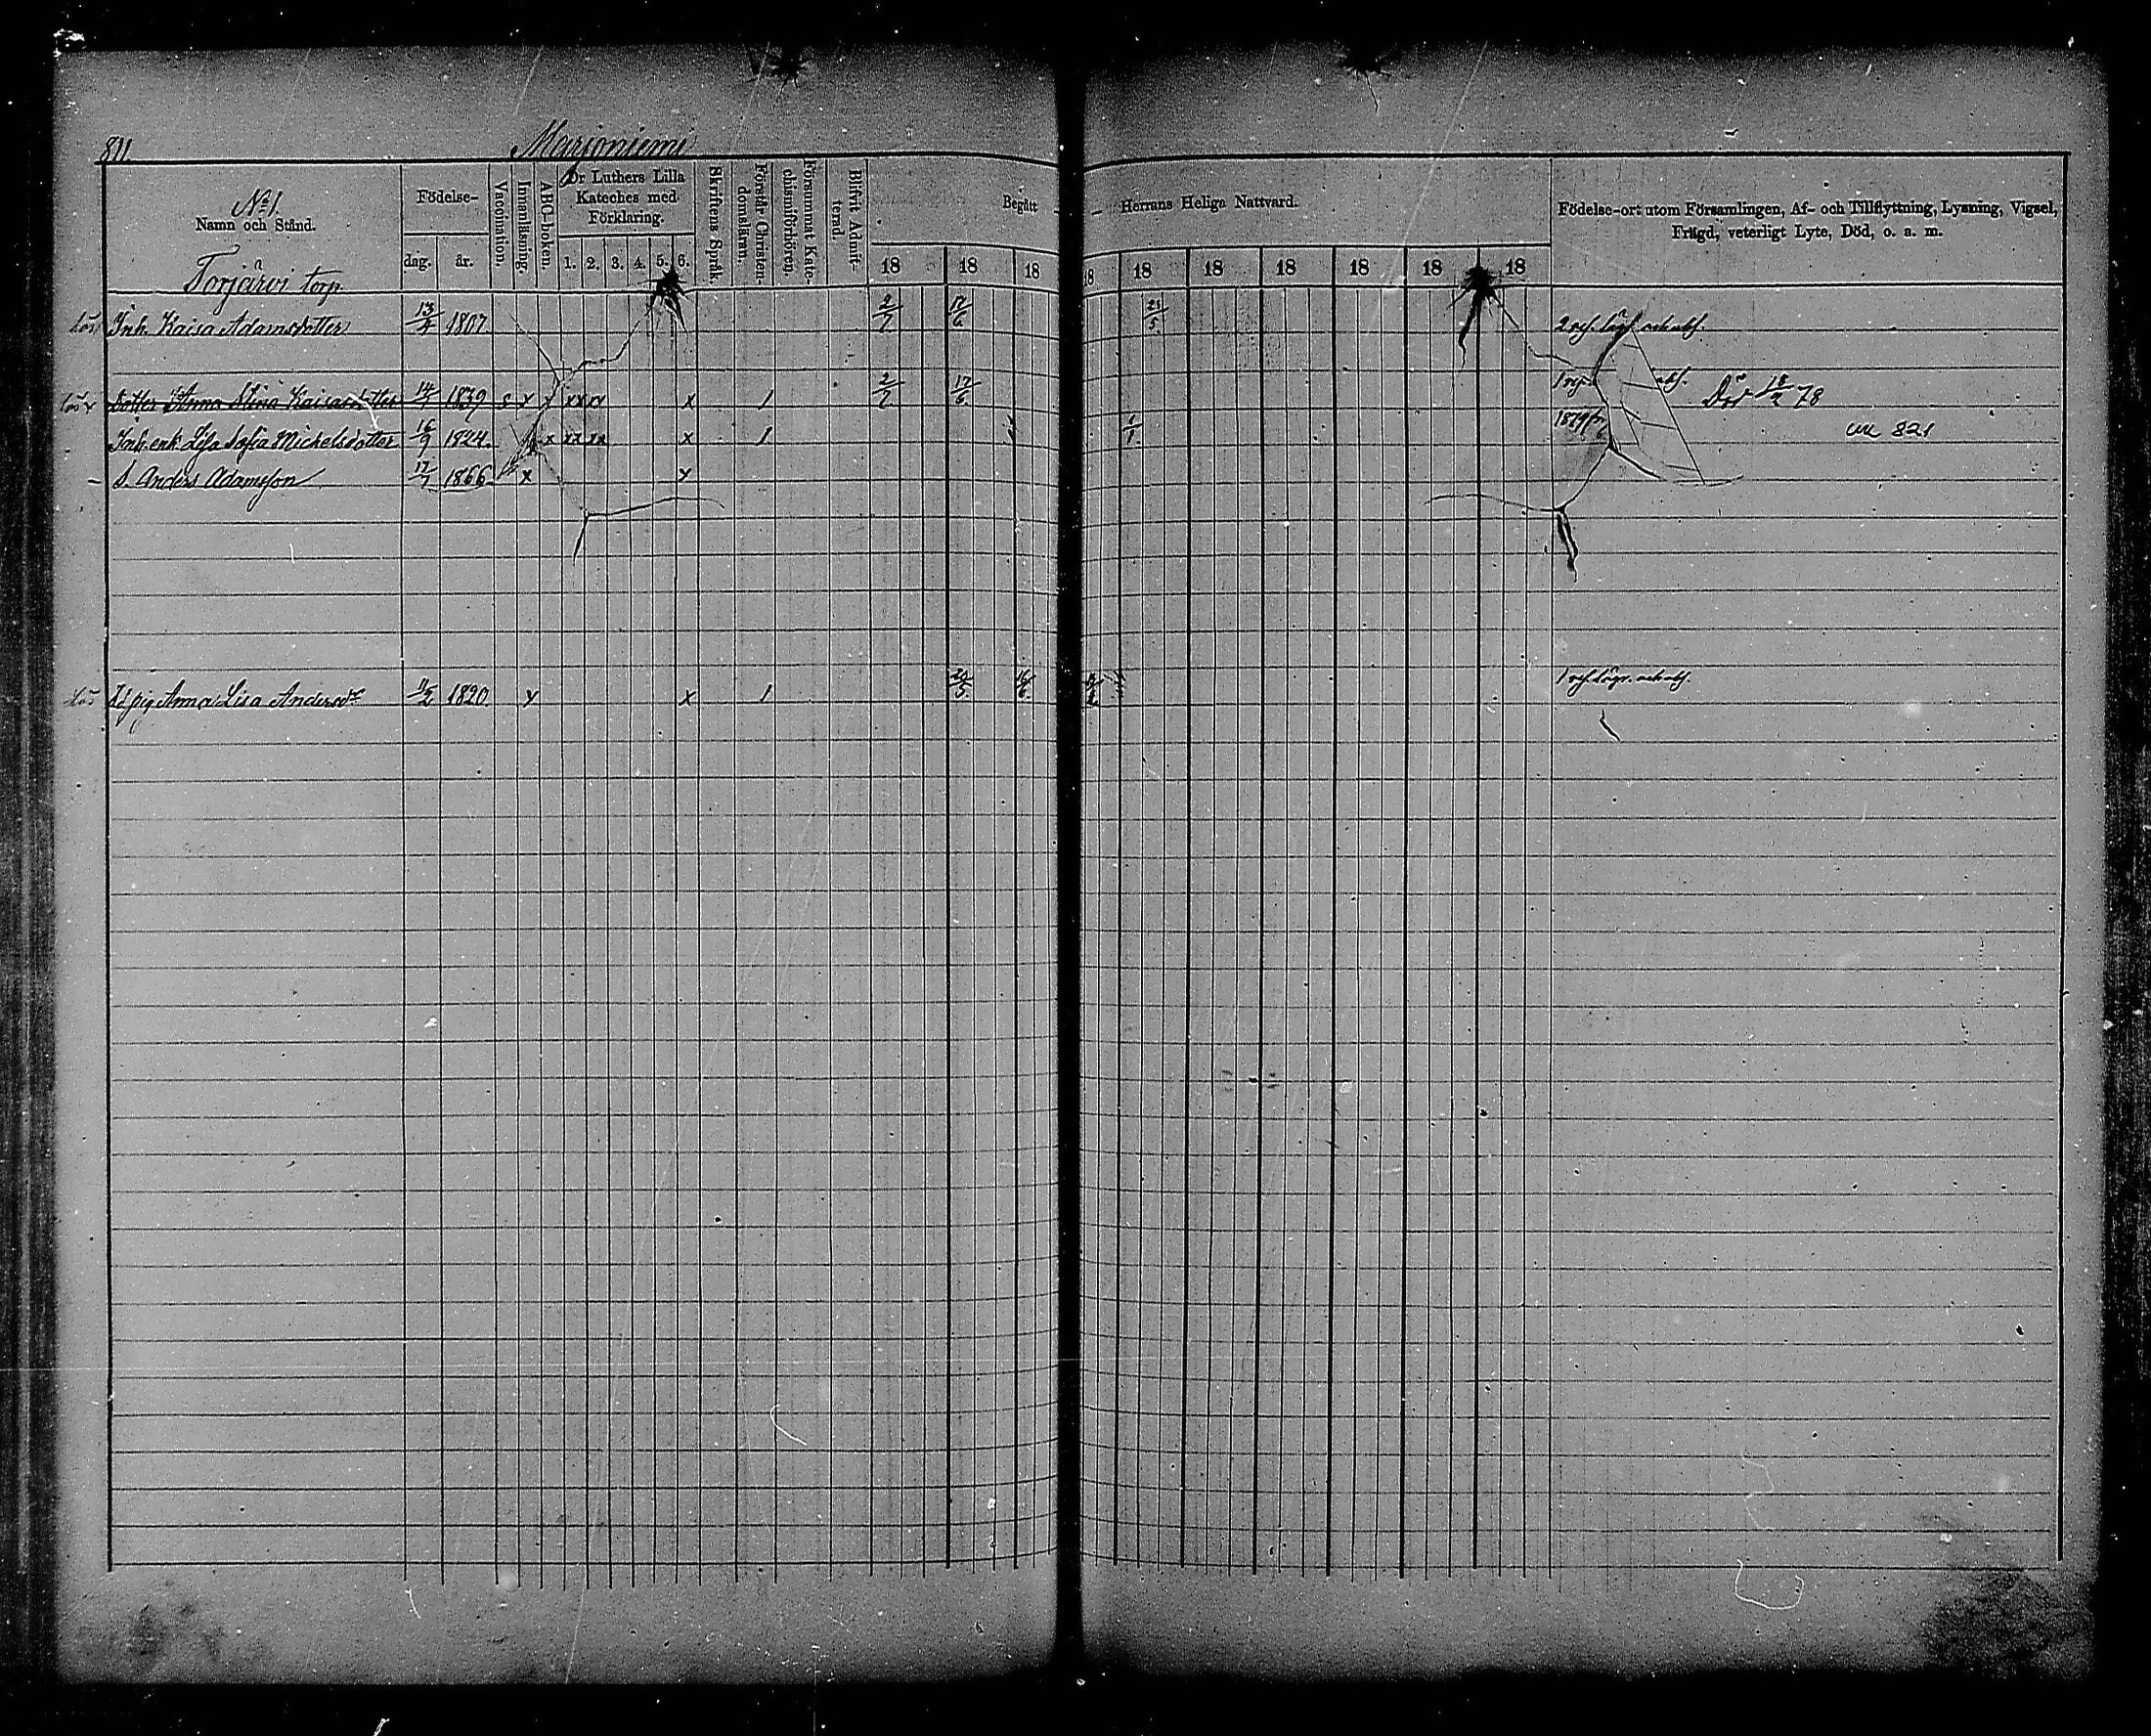 811.
Marjoniemi
No 1.
Namn och Stånd.
Födelse-
dag. år.
Vaccination.
Innanläsning.
ABC-boken.
Dr Luthers Lilla
Kateches med
Förklaring.
1. 2. 3. 4. 5. 6.
Skriftens Språk.
Förstår Christen-
domsläran.
Försummat Kate-
chismiförhören.
Blifvit Admit-
terad.
Begått
Herrans Heliga Nattvard.
18 18 18 18 18 18 18 18 18 18
Födelse-ort utom Församlingen, Af- och Tillflyttning, Lysning, Vigsel,
Frägd, veterligt Lyte, Död, o. a. m.
Torjärvi torp
Inh. Kaisa Adamsdotter 13/4 1807 2/7 17/6 21/5
Dotter Anna Stina Kaisasdotter 1839 s x x xx x 1 2/7 17/6 Död 18/2 78
Inh. enk. Lisa Sofia Mickelsdotter 16/9 1824 x x 1 821
S. Anders Adamsson 17/7 1866 x x
Anna Lisa Andersdr 1820 x x 1